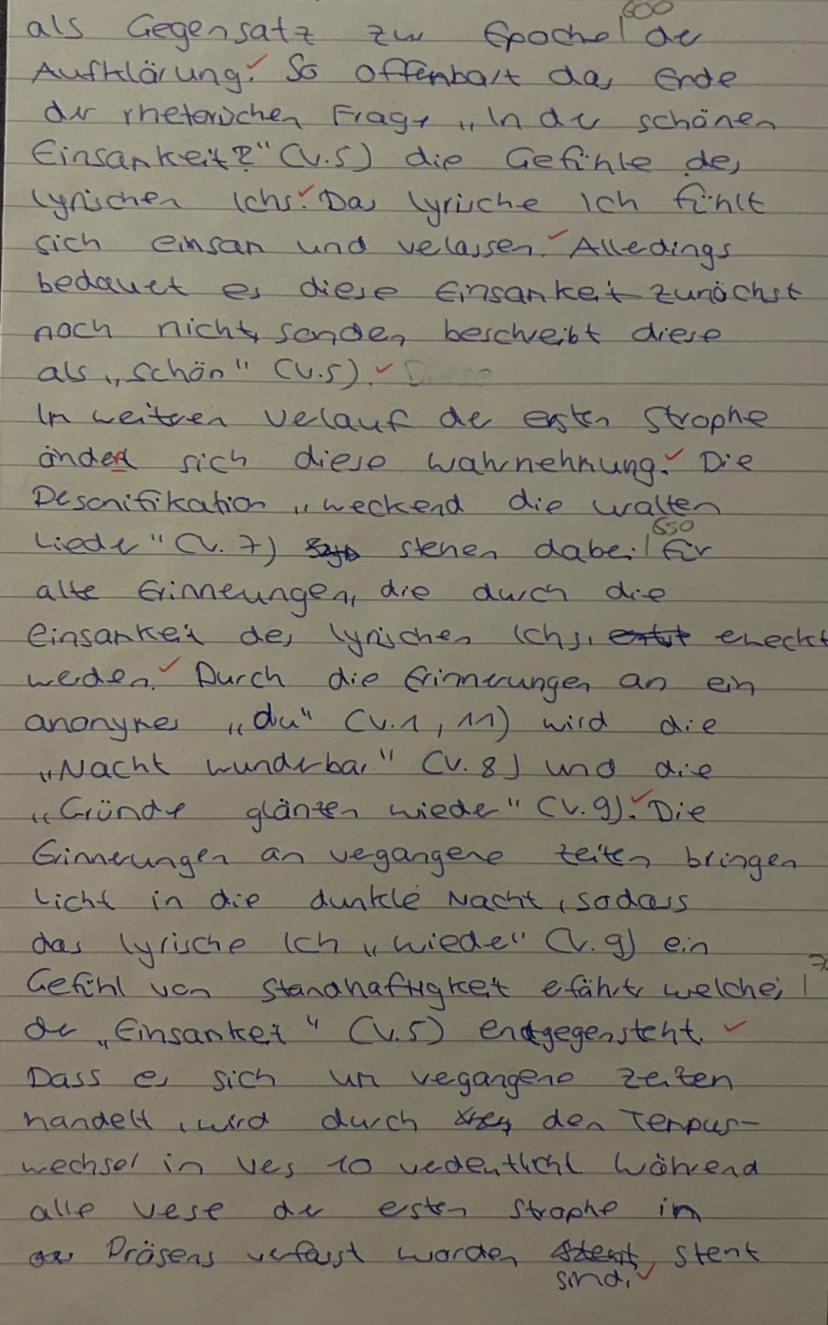 600
als Gegensatz zur Epoche| der
Aufklärung. So offenbart das Ende
der rhetorischen Frage „In der schönen
Einsamkeit?" (V.5) die Gefühle des
lyrischen Ichs. Das lyrische Ich fühlt
sich einsam und verlassen. Allerdings
bedauert es diese Einsamkeit zunächst
noch nicht, sondern beschreibt diese
als „schön" (V.5).
Im weiteren Verlauf der ersten Strophe
ändert sich diese Wahrnehmung. Die
Personifikation „weckend die walten
Lieder" (V. 7) stehen dabei| für
650
alte Erinnerungen, die durch die
Einsamkeit des lyrischen Ichs, erweckt
werden. Durch die Erinnerungen an ein
anonymes „du" (V.1, 11) wird die
„Nacht wunderbar" (V. 8) und die
„Gründe glänzen wieder" (V. 9). Die
Erinnerungen an vergangene Zeiten bringen
Licht in die dunkle Nacht, sodass
das lyrische Ich „wieder" (V. 9) ein
Gefühl von Standhaftigkeit erfährt, welches |
der „Einsamkeit" (V.5) entgegensteht.
Dass es sich um vergangene Zeiten
handelt, wird durch den Tempus-
wechsel in Vers 10 verdeutlicht während
alle Verse der ersten Strophe im
Präsens verfasst worden steht
sind.